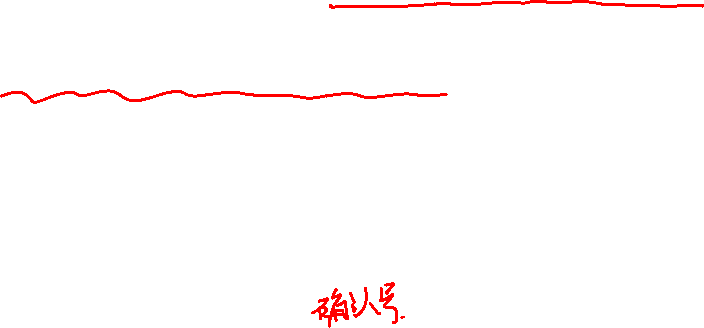 确认号.